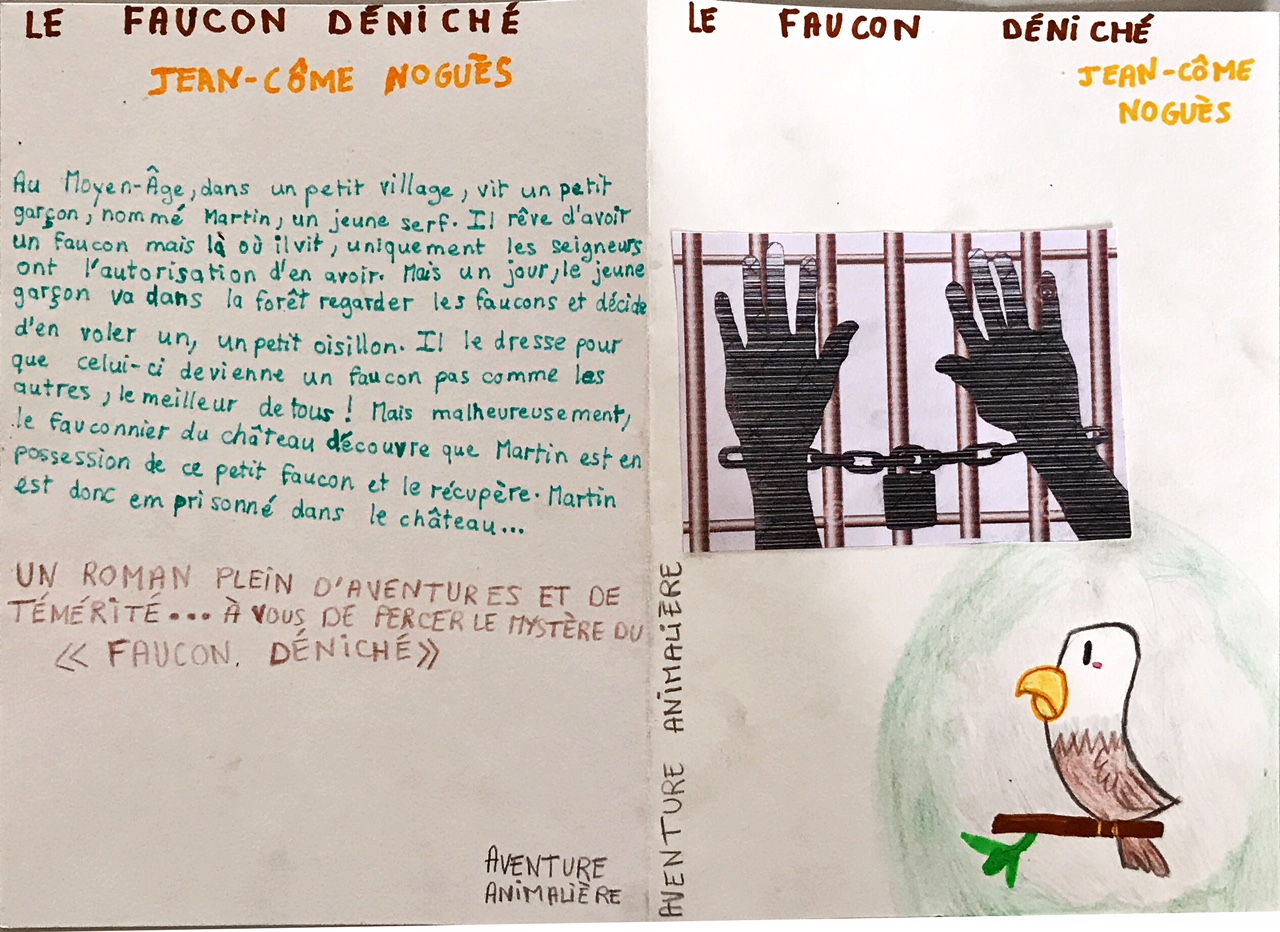 LE FAUCON DÉNICHÉ
JEAN-CÔME NOGUÈS
Au Moyen-Âge, dans un petit village, vit un petit
garçon, nommé Martin, un jeune serf. Il rêve d'avoir
un faucon mais là où il vit, uniquement les seigneurs
ont l'autorisation d'en avoir. Mais un jour, le jeune
garçon va dans la forêt regarder les faucons et décide
d'en voler un, un petit oisillon. Il le dresse pour
que celui-ci devienne un faucon pas comme les
autres, le meilleur de tous ! Mais malheureusement,
le fauconnier du château découvre que Martin est en
possession de ce petit faucon et le récupère. Martin
est donc emprisonné dans le château...
UN ROMAN PLEIN D'AVENTURES ET DE
TÉMÉRITÉ... À VOUS DE PERCER LE MYSTÈRE DU
« FAUCON. DÉNICHÉ»
AVENTURE
ANIMALIÈRE
AVENTURE ANIMALIÈRE
LE FAUCON DÉNICHÉ
JEAN-CÔME
NOGUÈS